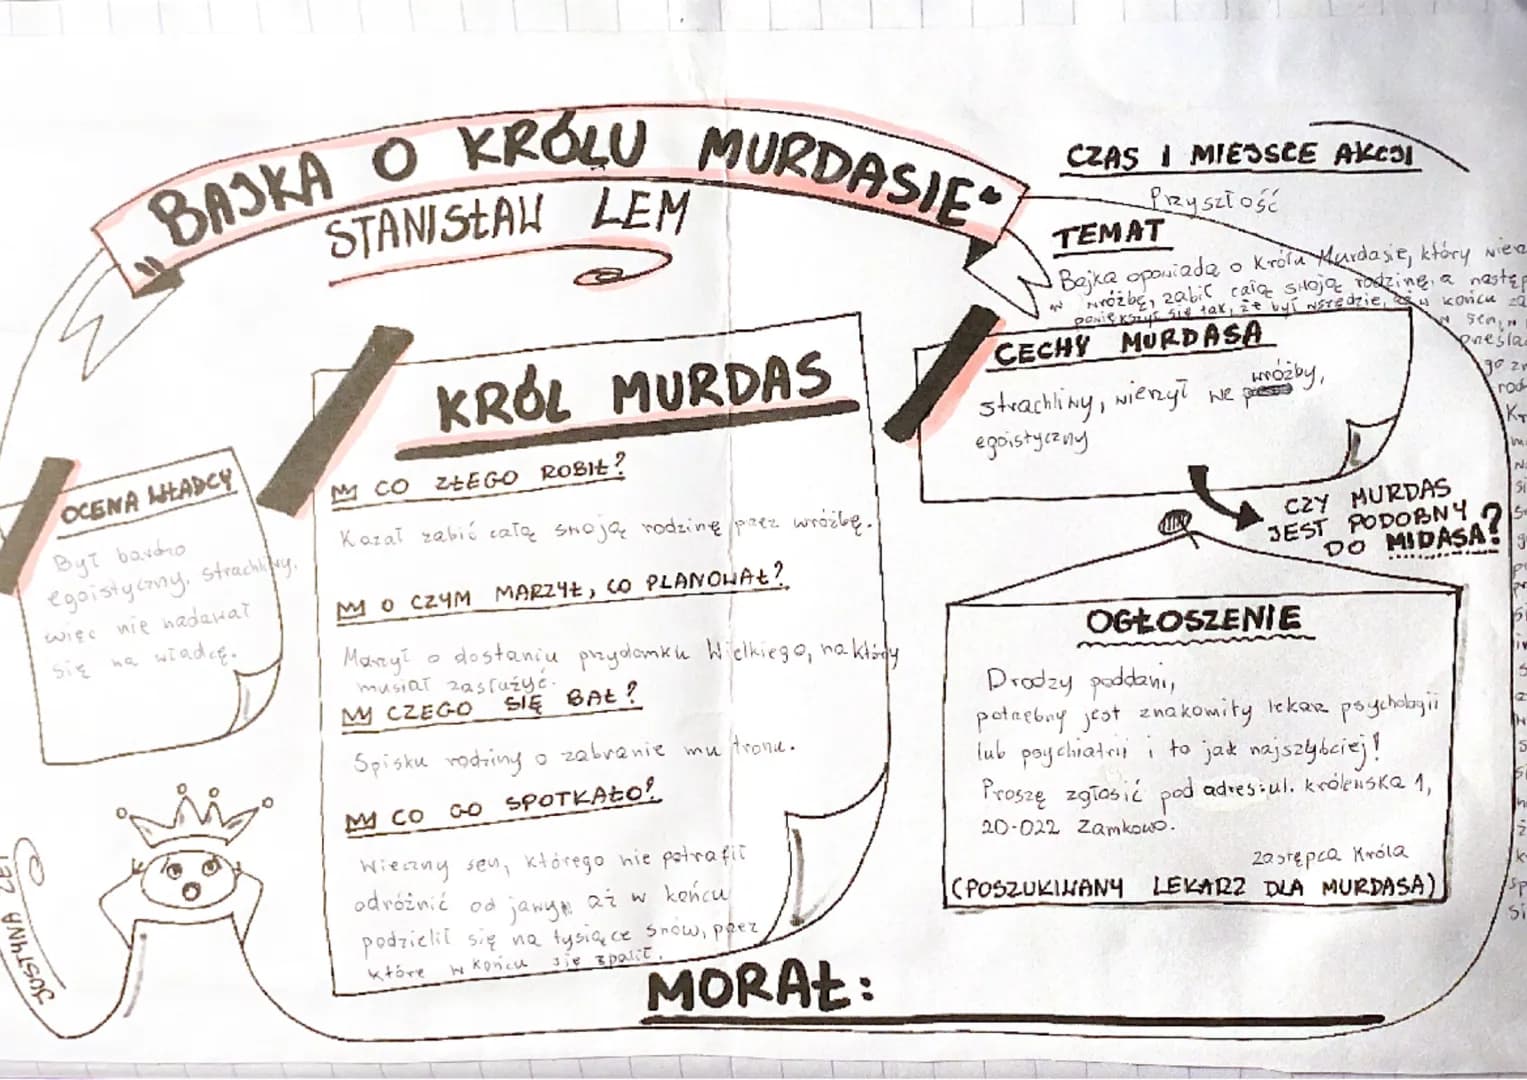 „BAJKA O KRÓLU MURDASIE"
STANISŁAW LEM
CZAS I MIEJSCE AKCJI
Przyszłość
TEMAT
Bajka opowiada o Królu Murdasie, który
w wróżbę, zabić całą swoją rodzinę, a
powiększył się tak, że był wszędzie, w końcu
KRÓL MURDAS
CO ZŁEGO ROBIŁ?
Kazał zabić całą swoją rodzinę przez wróżbę.
O CZYM MARZYŁ, CO PLANOWAŁ?
Marzył o dostaniu przydomku Wielkiego, na który
musiał zasłużyć.
CZEGO SIĘ BAŁ?
Spisku rodziny o zabranie mu tronu.
CO GO SPOTKAŁO?
Wieczny sen, którego nie potrafił
odróżnić od jawy aż w końcu
podzielił się na tysiące snów, przez
które w końcu się spalił.
CECHY MURDASA
strachliwy, wierzył we wróżby,
egoistyczny
CZY MURDAS
JEST PODOBNY
DO MIDASA?
OCENA WŁADCY
Był bardzo
egoistyczny, strachliwy,
więc nie nadawał
się na władcę.
OGŁOSZENIE
Drodzy poddani,
potrzebny jest znakomity lekarz psychologii
lub psychiatrii i to jak najszybciej!
Proszę zgłosić pod adres: ul. królewska 1,
20-022 Zamkowo.
zastępca Króla
(POSZUKIWANY LEKARZ DLA MURDASA)
MORAŁ:
JUSTYNA